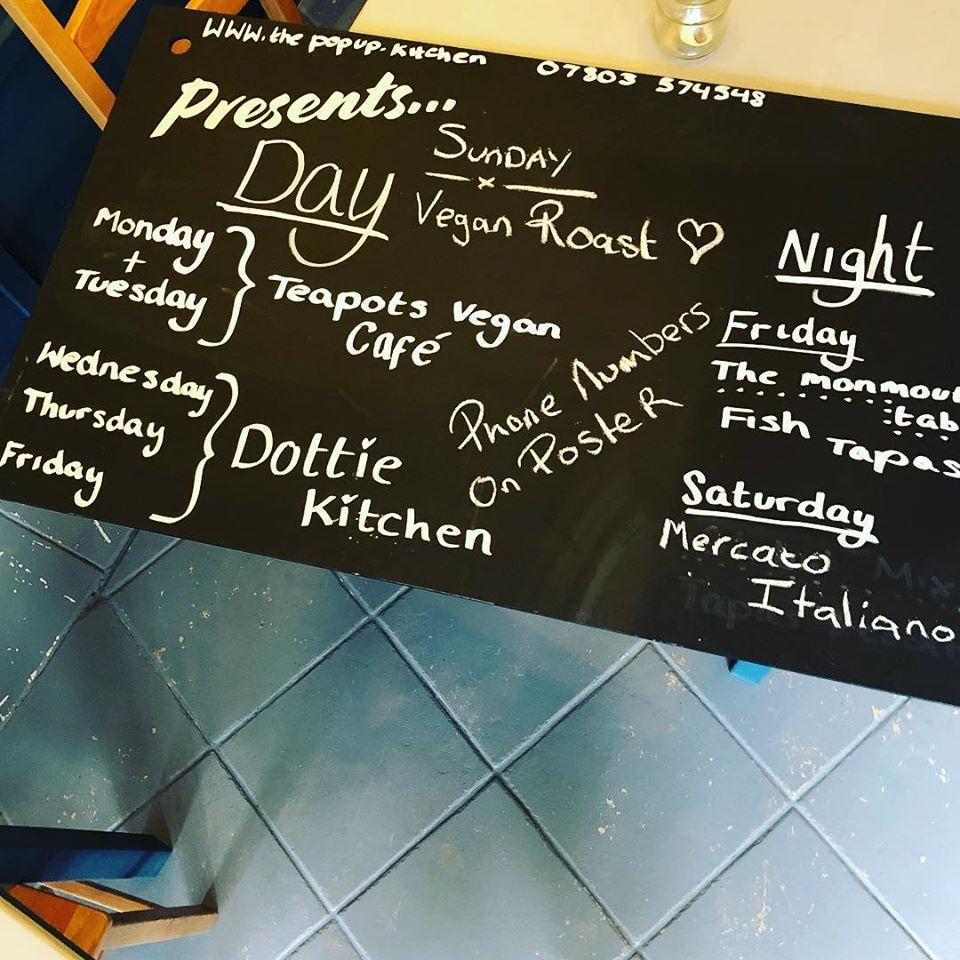 www.the popup.kitchen 07803 574548
Presents...
Day
Sunday
Vegan Roast
Monday
+
Tuesday
Teapots Vegan
Café
Wednesday
Thursday
Friday
Dottie
Kitchen
Phone Numbers
On Poster
Night
Friday
The monmout
tab
Fish
Tapas
Saturday
Mercato
Italiano